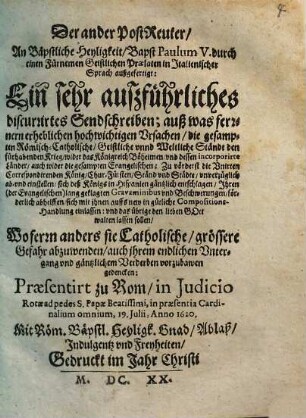 Der ander PostReuter/
An Bäpstliche Heyligkeit/ Bapst Paulum V. durch
einen Fürnemen Geistlichen Prælaten in Italienischer
Sprach außgefertigt:
Ein sehr außführliches
discurirtes Sendschreiben; auß was fer⸗
nern erheblichen hochwichtigen Vrsachen/ die gesamp⸗
ten Römisch-Catholische/ Geistliche vnnd Weltliche Stände den
fürhabenden Krieg wider das Königreich Böhemen vnd dessen incorporirte
Länder/ auch wider die gesampten Evangelischen; Zu vörderst die Vnirten
Correspondirenden König/ Chur-Fürsten/ Ständ vnd Städte/ vnverzüglich
ab vnd einstellen/ sich deß Königs in Hispanien gäntzlich entschlagen/ Ihren
(der Evangelischen) lang geklagten Gravaminibus vnd Beschwerungen/ för⸗
derlich abhelffen/ sich mit ihnen auffs new in gütliche Compositions-
Handlung einlassen; vnd das übrige den lieben GOtt
walten lassen sollen/
Woferrn anders sie Catholische/ grössere
Gefahr abzuwenden/ auch ihrem endlichen Vnter⸗
gang vnd gäntzlichem Verderben vorzubawen
gedencken:
Præsentirt zu Rom/ in Judicio
Rotæ ad pedes S. Papæ Beatissimi, in præsentia Cardi-
nalium omnium, 19. Julii, Anno 1620.
Mit Röm. Bäpstl. Heyligk. Gnad/ Ablaß/
Indulgentz vnd Freyheiten/
Gedruckt im Jahr Christi
M. DC. XX.